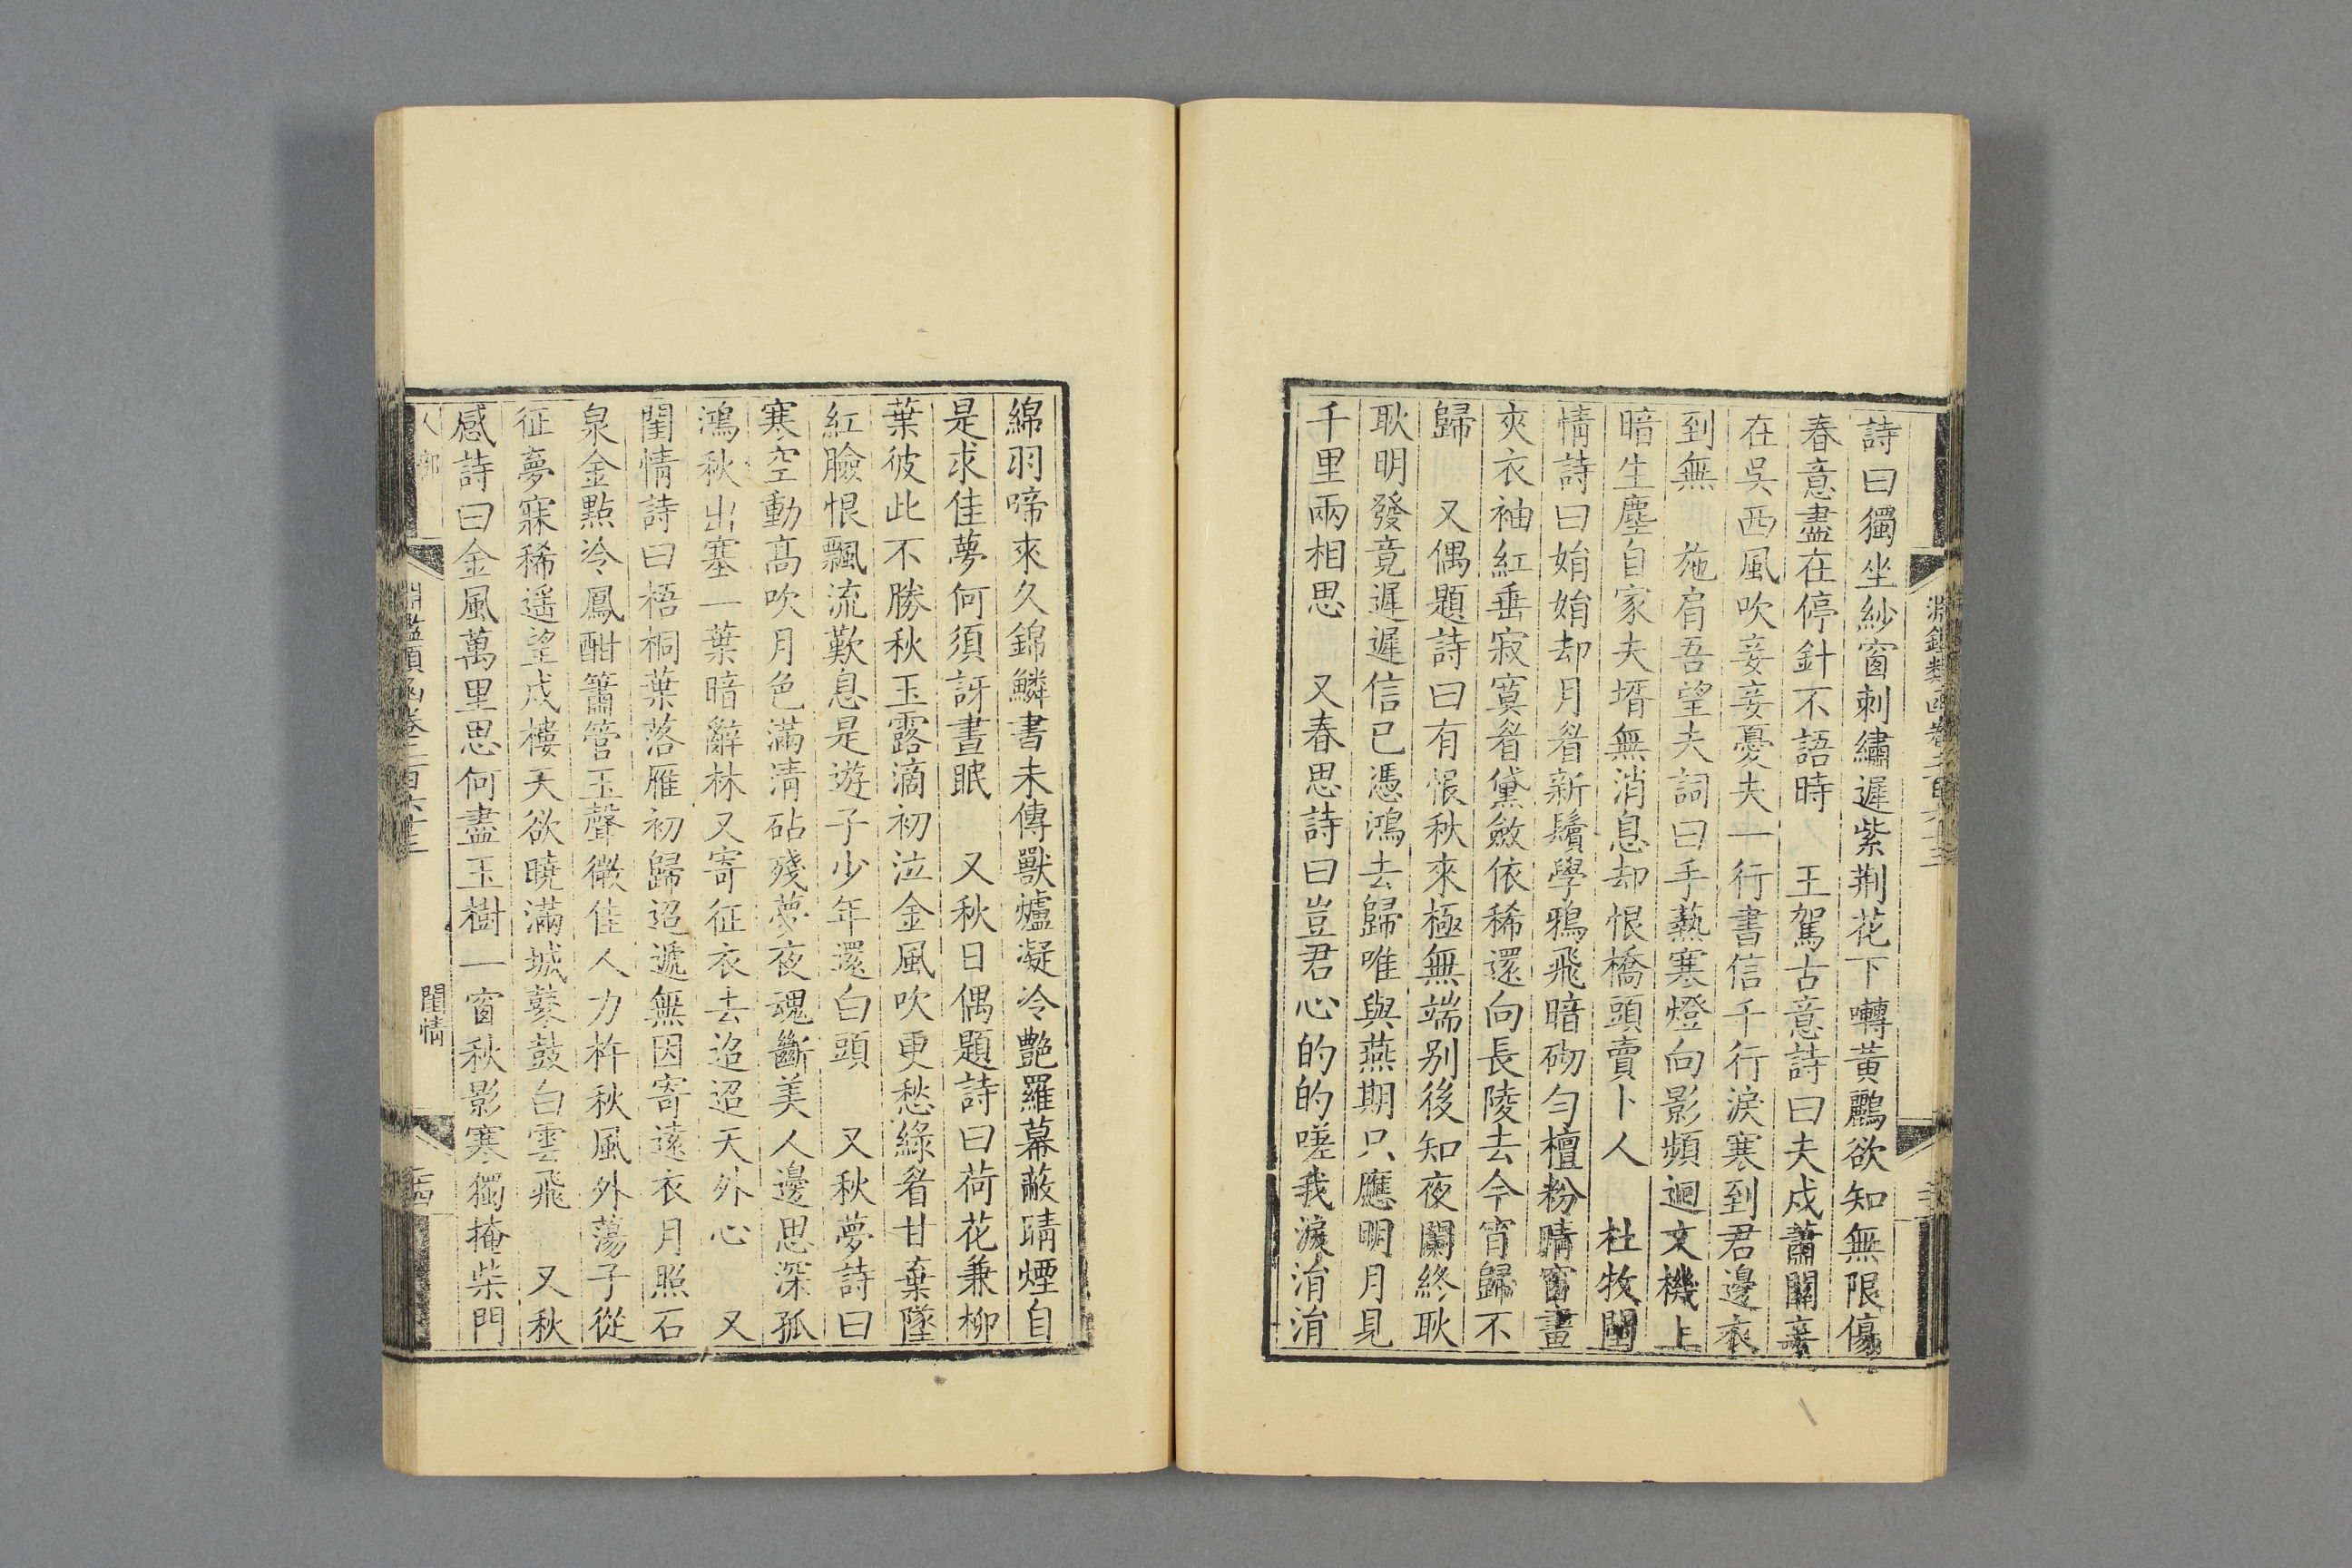 詩曰獨坐紗窗刺繡遲紫荆花下囀黃鸝欲知無限傷
春意盡在停針不語時　王駕古意詩曰夫戍蕭關妾
在吳西風吹妾妾憂夫一行書信千行淚寒到君邊衣
到無　施肩吾望夫詞曰手爇寒燈向影頻迴文機上
暗生塵自家夫壻無消息却恨橋頭賣卜人　杜牧閨
情詩曰娟娟却月眉新鬢學鴉飛暗砌勻檀粉晴窗畫
夾衣袖紅垂寂寞眉黛斂依稀還向長陵去今宵歸不
歸　又偶題詩曰有恨秋來極無端别後知夜闌終耿
耿明發竟遲遲信已憑鴻去歸唯與燕期只應明月見
千里兩相思　又春思詩曰豈君心的的嗟我淚涓涓
綿羽啼來久錦鱗書未傳獸爐凝冷艷羅幕蔽晴煙自
是求佳夢何須訝晝眠　又秋日偶題詩曰荷花兼柳
葉彼此不勝秋玉露滴初泣金風吹更愁綠眉甘棄墜
紅臉恨飄流歎息是遊子少年還白頭　又秋夢詩曰
寒空動高吹月色滿清砧殘夢夜魂斷美人邊思深孤
鴻秋出塞一葉暗辭林又寄征衣去迢迢天外心　又
閨情詩曰梧桐葉落雁初歸迢遞無因寄遠衣月照石
泉金點冷鳳酣簫管玉聲微佳人力杵秋風外蕩子從
征夢寐稀遥望戍樓天欲曉滿城鼕鼓白雲飛　又秋
感詩曰金風萬里思何盡玉樹一窗秋影寒獨掩柴門
人部
淵鑑類函卷二百六十三
閨情